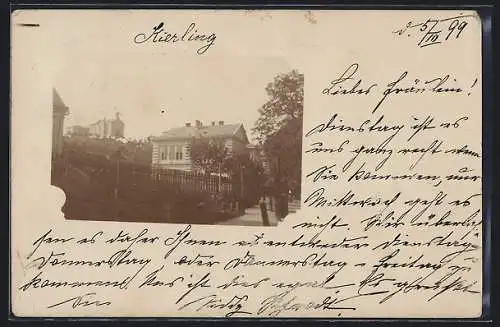 Kierling
d. 5/III 99
Liebes Fräulein!
Dienstag ist es
uns ganz recht wenn
Sie kommen, nur
Mittwoch geht es
nicht. Wir überlas
sen es daher Ihnen entweder Dienstag
Donnerstag oder Donnerstag - Freitag zu
kommen. Uns ist dies egal. Es grüsst
Sie